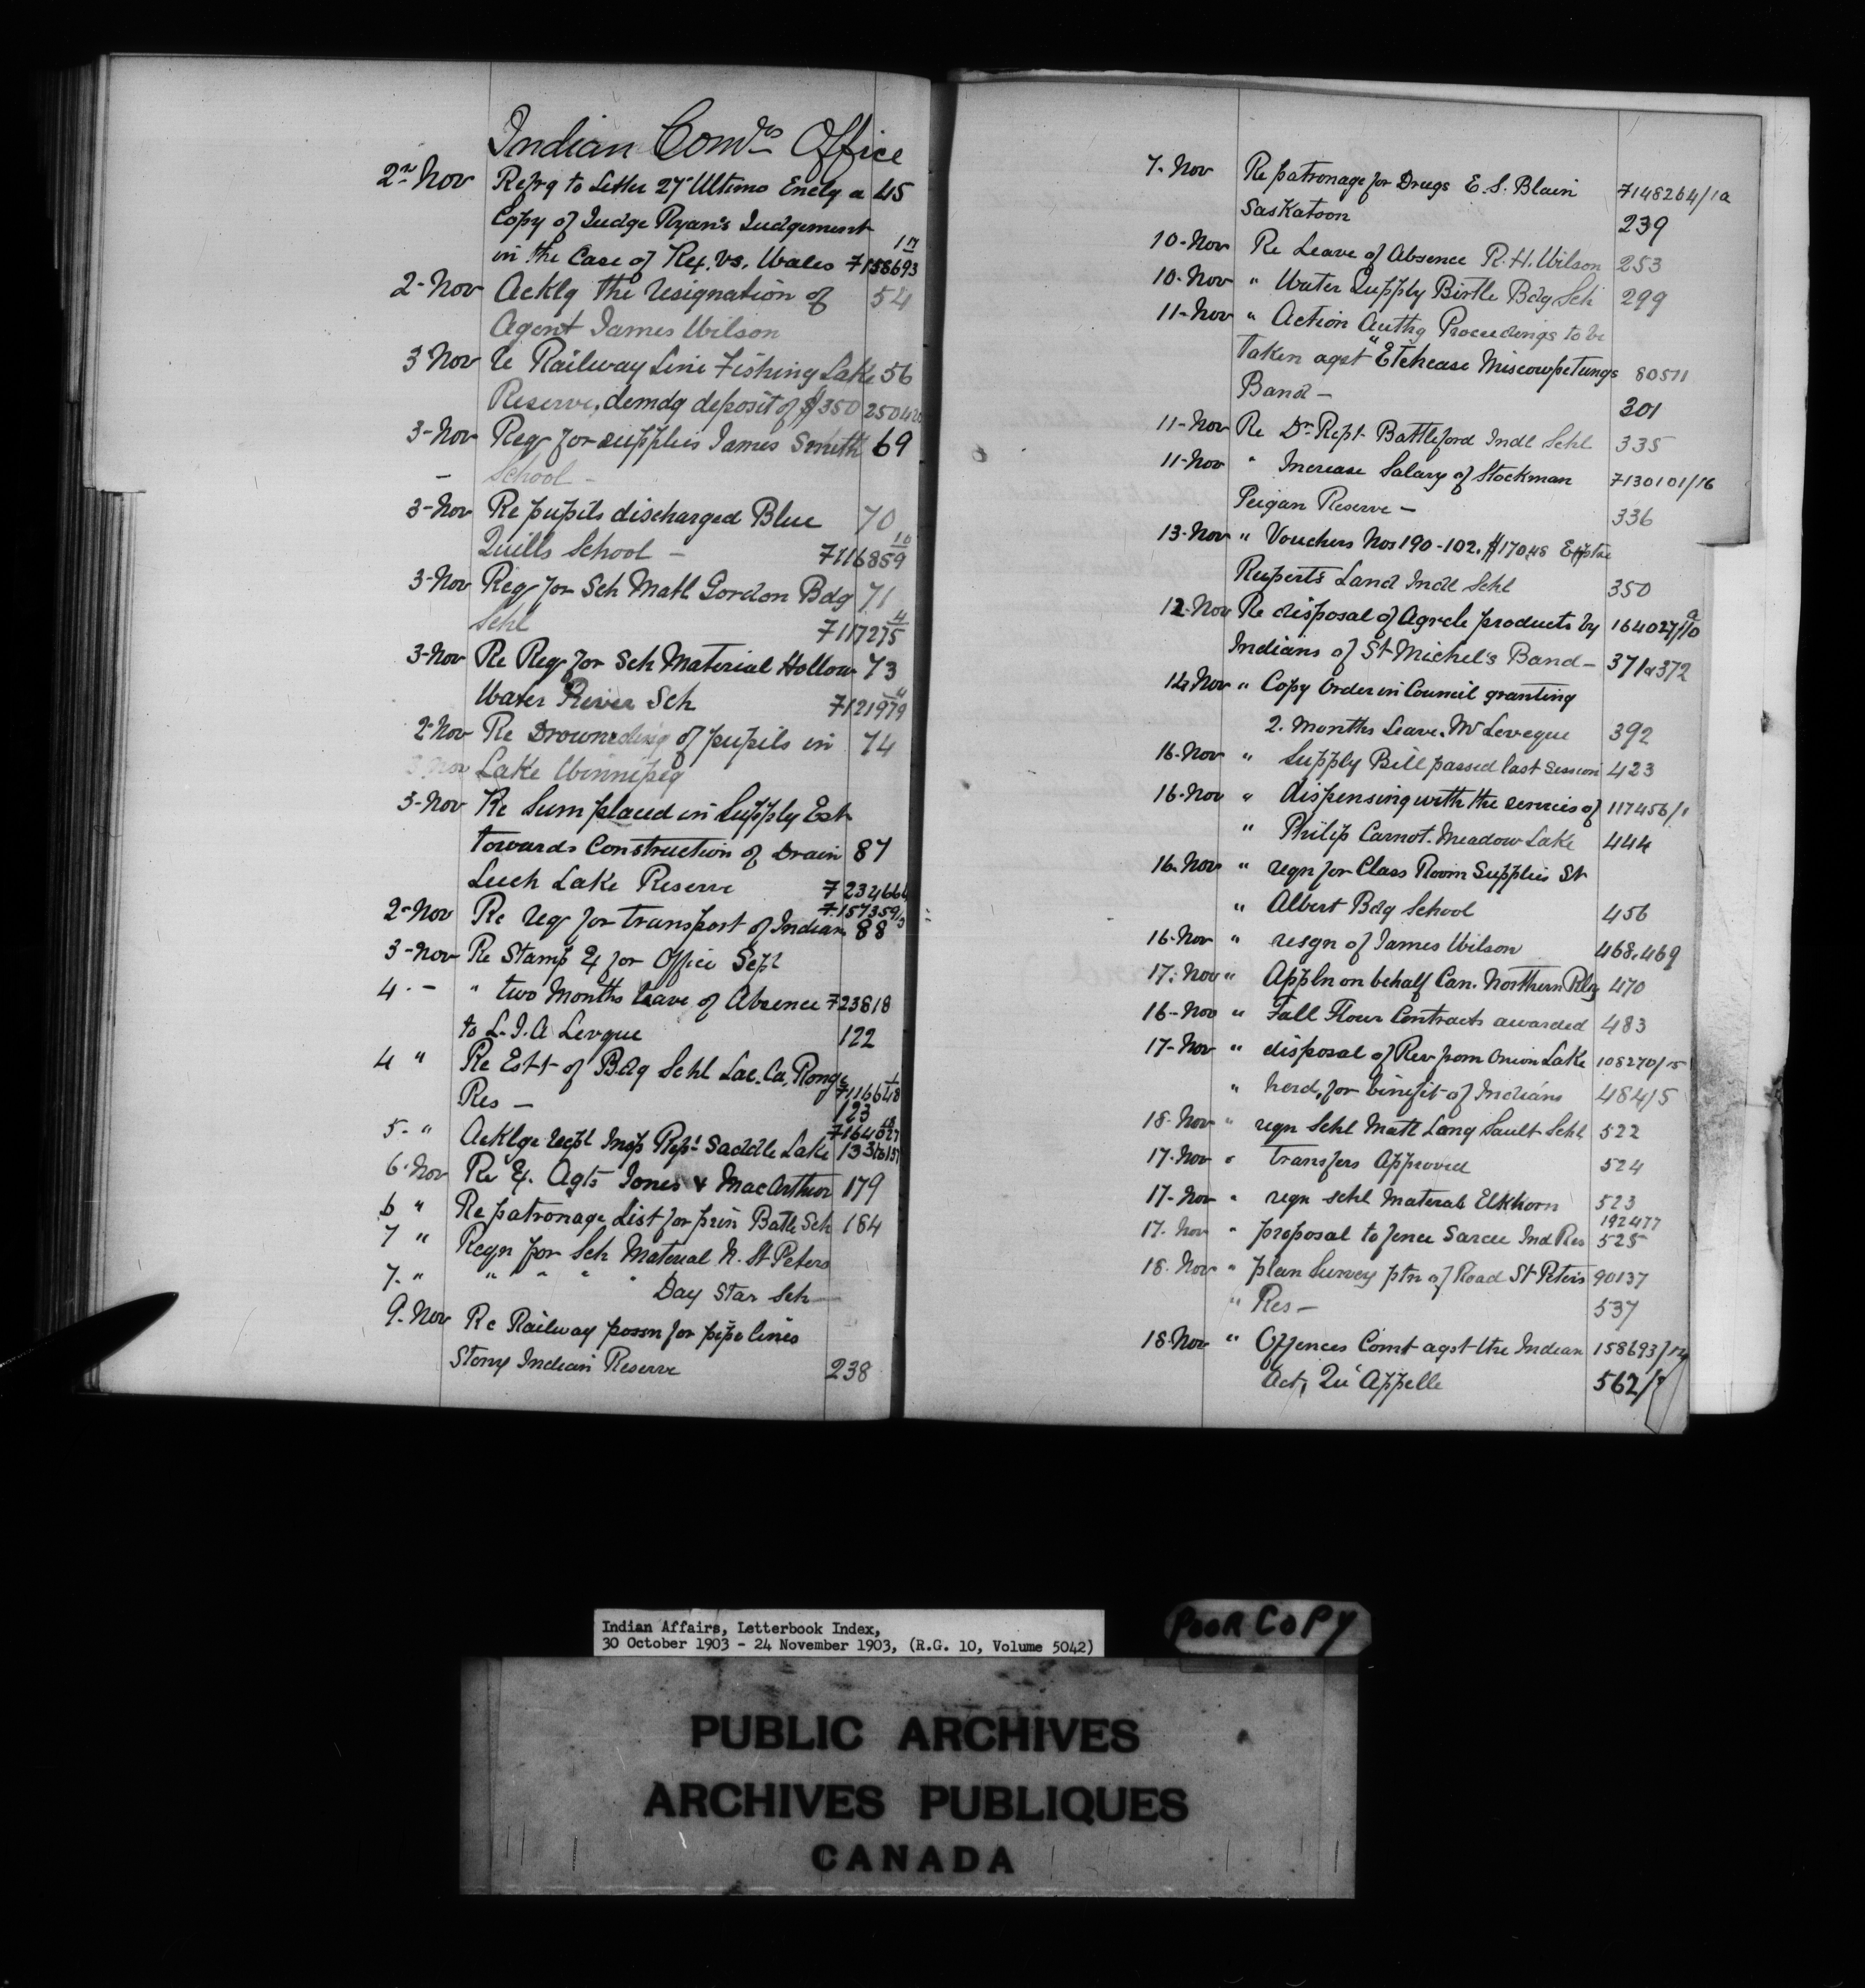 Indian Comrs Office
2nd Nov Refrg to Letter 27 Ultimo Enclg a 45
Copy of Judge Ryan's Judgement 17
in the Case of Rex. vs. Wales F158693
2-Nov Acklg the resignation of 54
Agent James Wilson
3 Nov re Railway Line Fishing Lake 56
Reserve, demdg deposit of $350 250420
3-Nov Reqr for supplies James Smith 69
- School -
3-Nov Re pupils discharged Blue 70
10
Quills School - F116859
3-Nov Reqr for Sch Matl Gordon Bdg 71
4
Schl F117275
3-Nov Re Reqr for Sch Material Hollow 73
Water River Sch F121979
2-Nov Re Drowneding of pupils in 74
3 Nov Lake Winnipeg
3-Nov Re Sum placed in Supply Est
towards Construction of Drain 87
Leech Lake Reserve F 234664
F.157359/3
2-Nov Re reqr for transport of Indian 88
3-Nov Re Stamp Ex for Office Sept
4. - " two Months leave of Absence F23818
to L. J. A Levque 122
4 " Re Estt of Bdg Schl Lac. La. Ronge F116648
Res - 123
18
F164027
5- " Acklge recpt Insp Rept Saddle Lake 133 to 157
6-Nov Re Ex. Agts Jones & MacArthur 179
6 " Re patronage List for prin Batle Sch 184
7 " Reqn for Sch Material N. St Peters
7- " " " " " Day Star Sch
9-Nov Re Railway possn for pipe lines
Stony Indian Reserve 238
7-Nov Re patronage for Drugs E. S. Blain F148264/1a
Saskatoon 239
10-Nov Re Leave of Absence R. H. Wilson 253
10-Nov " Water Supply Birtle Bdg Sch 299
11-Nov " Action Authg Proceedings to be
taken agst "Etchease Miscowpetungs 80511
Band - 301
11-Nov Re Dr. Rept- Battleford Indl Schl 335
11-Nov " Increase Salary of Stockman F130101/16
Peigan Reserve - 336
13-Nov " Vouchers Nos 190-102. $170.48
Ruperts Land Indl Schl 350
12-Nov Re disposal of Agrcle products by 164027/10a
Indians of St Michel's Band - 371a372
14 Nov " Copy Order in Council granting
2. Months Leave. Mr Leveque 392
16-Nov " Supply Bill passed last session 423
16-Nov " dispensing with the services of 117456/1
" Philip Carnot. Meadow Lake 444
16-Nov " reqn for Class Room Supplies St
" Albert Bdg School 456
16-Nov " resgn of James Wilson 468.469
17-Nov " Appln on behalf Can. Northern Rly 470
16-Nov " Fall Flour Contracts awarded 483
17-Nov " disposal of Rev from Onion Lake 108270/15
" herd, for benefit of Indians 484/5
18-Nov " reqn Schl Matl Long Sault Schl 522
17-Nov " transfers Approved 524
17-Nov " reqn schl Materials Elkhorn 523
192477
17-Nov " proposal to fence Sarcee Ind Res 525
18-Nov " plan Survey ptn of Road St Peters 90137
" Res - 537
18-Nov " Offences Comt agst the Indian 158693/17
Act, Qu'Appelle 562/
Indian Affairs, Letterbook Index,
30 October 1903 - 24 November 1903, (R.G. 10, Volume 5042)
POOR COPY
PUBLIC ARCHIVES
ARCHIVES PUBLIQUES
CANADA